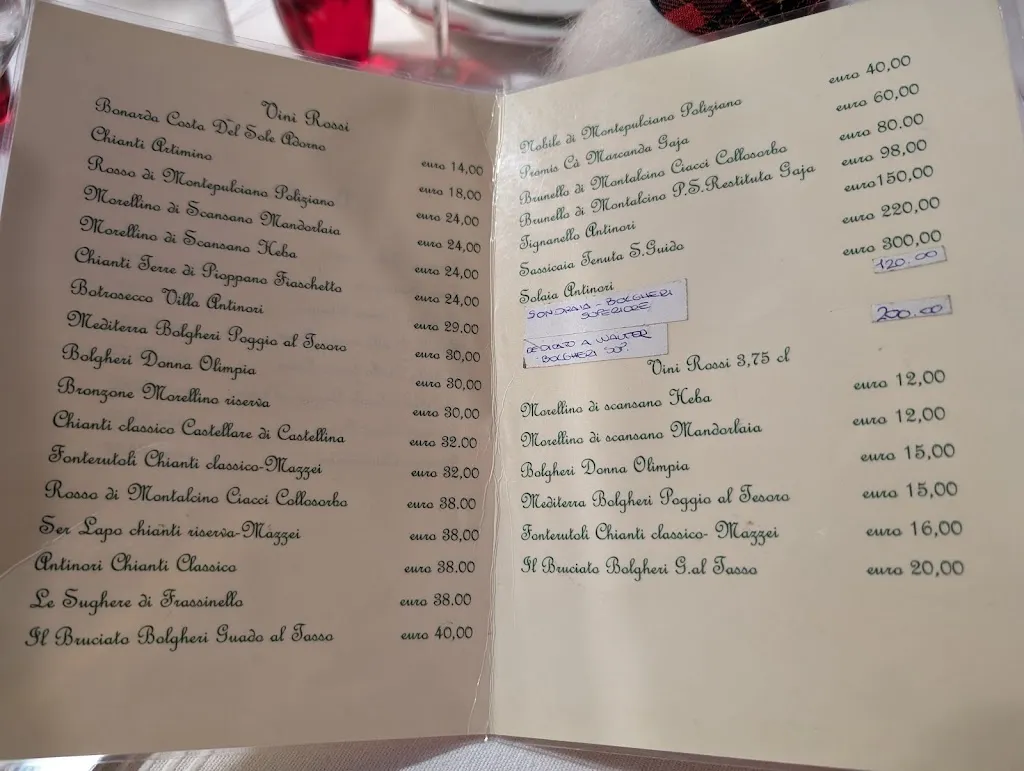 Vini Rossi
Bonarda Costa Del Sole Adorno euro 14,00
Chianti Artimino euro 18,00
Rosso di Montepulciano Poliziano euro 24,00
Morellino di Scansano Mandorlaia euro 24,00
Morellino di Scansano Heba euro 24,00
Chianti Terre di Pioppano Fiaschetto euro 24,00
Botrosecco Villa Antinori euro 29.00
Mediterra Bolgheri Poggio al Tesoro euro 30,00
Bolgheri Donna Olimpia euro 30,00
Bronzone Morellino riserva euro 30,00
Chianti classico Castellare di Castellina euro 32.00
Fonterutoli Chianti classico-Mazzei euro 32,00
Rosso di Montalcino Ciacci Collosorbo euro 38.00
Ser Lapo chianti riserva-Mazzei euro 38,00
Antinori Chianti Classico euro 38.00
Le Sughere di Frassinello euro 38.00
Il Bruciato Bolgheri Guado al Tasso euro 40,00
Nobile di Montepulciano Poliziano euro 40,00
Promis Cà Marcanda Gaja euro 60,00
Brunello di Montalcino Ciacci Collosorbo euro 80.00
Brunello di Montalcino P.S.Restituta Gaja euro 98,00
Tignanello Antinori euro150,00
Sassicaia Tenuta S.Guido euro 220,00
Solaia Antinori euro 300,00
SONDRAIA - BOLGHERI 120.00
SUPERIORE
DEDICATO A WALTER 200.00
BOLGHERI SUP.
Vini Rossi 3,75 cl
Morellino di scansano Heba euro 12,00
Morellino di scansano Mandorlaia euro 12,00
Bolgheri Donna Olimpia euro 15,00
Mediterra Bolgheri Poggio al Tesoro euro 15,00
Fonterutoli Chianti classico- Mazzei euro 16,00
Il Bruciato Bolgheri G.al Tasso euro 20,00